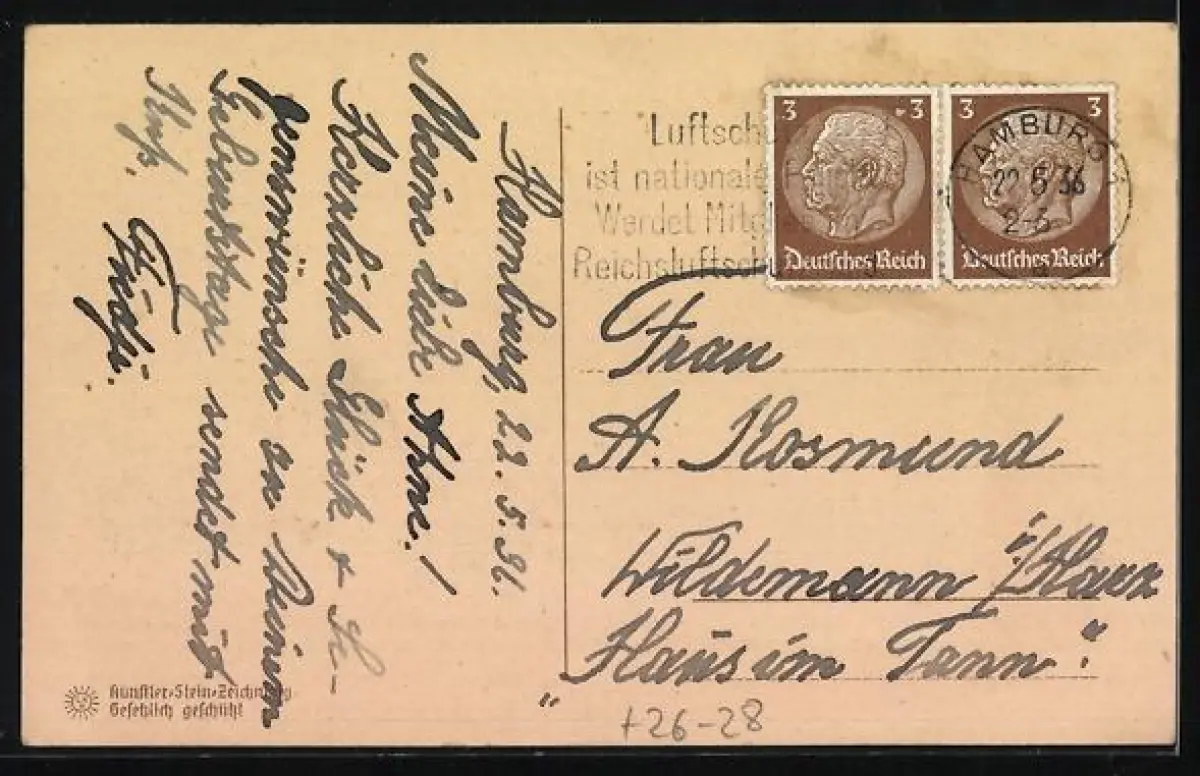 Hamburg, 22. 5. 36.
Meine liebe Anne!
Herzliche Glück- & Se-
genswünsche zu Deinem
Geburtstage sendet mit
Kuß,
Luftsch
ist nationale
Werdet Mitg
Reichsluftsch
3 3
Deutsches Reich
3 3
Deutsches Reich
HAMBURG
22.5.36
2-3
Frau
A. Rosmund
Wildemann i/Harz
„Haus im Tann“.
Künstler-Stein-Zeichnung
Gesetzlich geschützt
+26-28